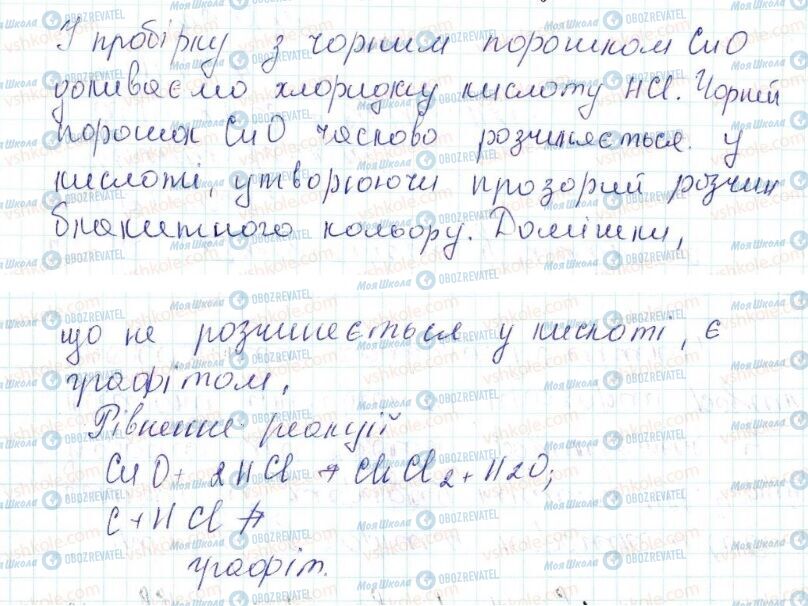 У пробірку з чорним порошком CuO
доливаємо хлоридну кислоту HCl. Чорний
порошок CuO часково розчиняється у
кислоті, утворюючи прозорий розчин
блакитного кольору. Домішки,
що не розчиняється у кислоті, є
графітом.
Рівняння реакції
CuO + 2HCl → CuCl2 + H2O;
C + HCl ↛
графіт.